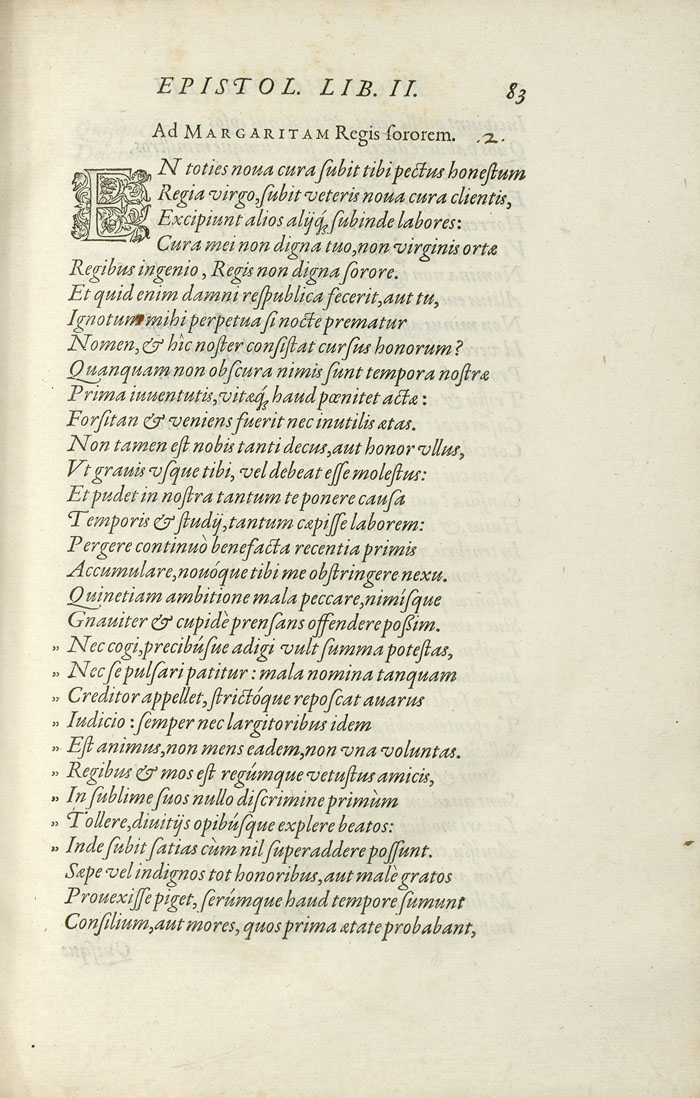 EPISTOL. LIB. II. 83
Ad MARGARITAM Regis sororem. .2.
EN toties noua cura subit tibi pectus honestum
Regia virgo, subit veteris noua cura clientis,
Excipiunt alios alijq; subinde labores:
Cura mei non digna tuo, non virginis ortæ
Regibus ingenio, Regis non digna sorore.
Et quid enim damni respublica fecerit, aut tu,
Ignotum mihi perpetua si nocte prematur
Nomen, & hîc noster consistat cursus honorum?
Quanquam non obscura nimis sunt tempora nostræ
Prima iuuentutis, vitæq; haud pœnitet actæ:
Forsitan & veniens fuerit nec inutilis ætas.
Non tamen est nobis tanti decus, aut honor vllus,
Vt grauis vsque tibi, vel debeat esse molestus:
Et pudet in nostra tantum te ponere causa
Temporis & studij, tantum cæpisse laborem:
Pergere continuò benefacta recentia primis
Accumulare, nouóque tibi me obstringere nexu.
Quinetiam ambitione mala peccare, nimísque
Gnauiter & cupidè prensans offendere possim.
" Nec cogi, precibúsue adigi vult summa potestas,
" Nec se pulsari patitur: mala nomina tanquam
" Creditor appellet, strictóque reposcat auarus
" Iudicio: semper nec largitoribus idem
" Est animus, non mens eadem, non vna voluntas.
" Regibus & mos est regúmque vetustus amicis,
" In sublime suos nullo discrimine primùm
" Tollere, diuitijs opibúsque explere beatos:
" Inde subit satias cùm nil superaddere possunt.
Sæpe vel indignos tot honoribus, aut malè gratos
Prouexisse piget, serúmque haud tempore sumunt
Consilium, aut mores, quos prima ætate probabant,